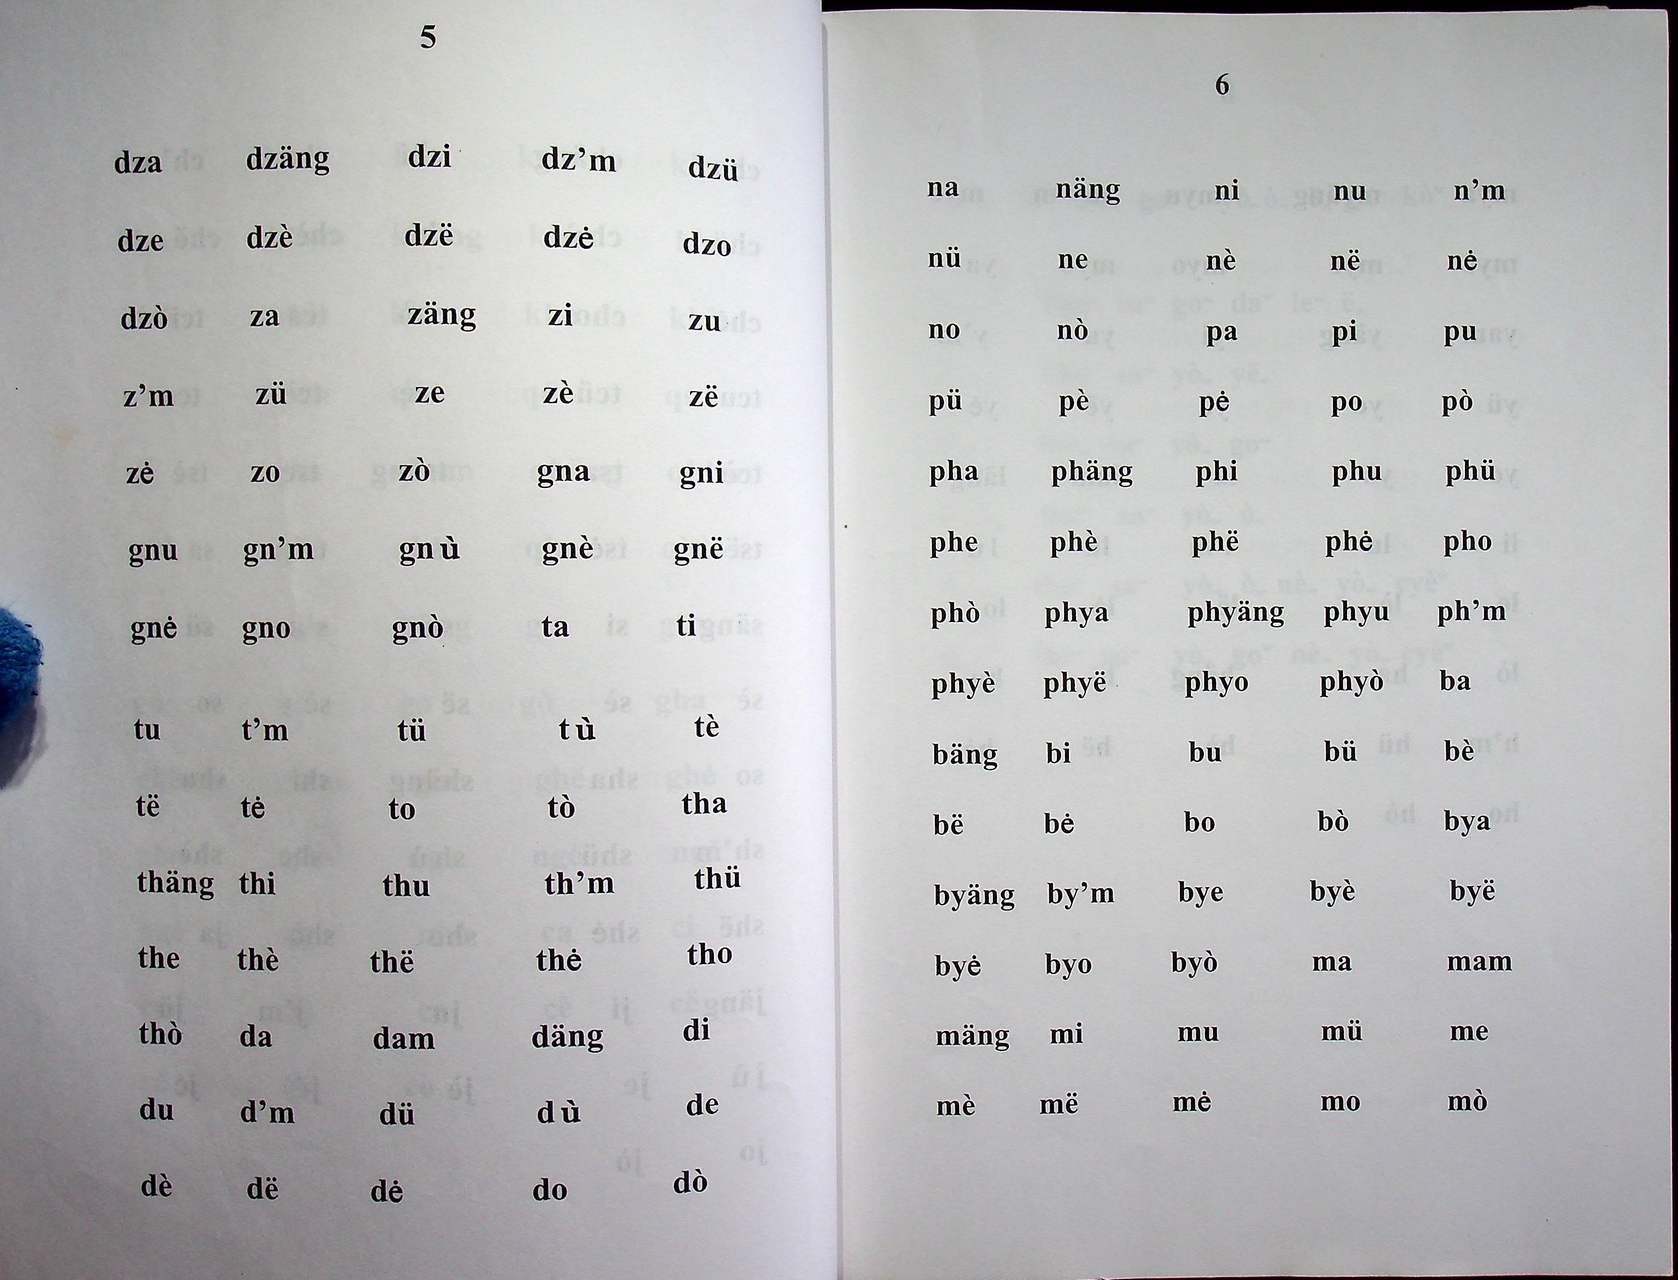 5
dza dzäng dzi dz’m dzü
dze dzè dzë dzė dzo
dzò za zäng zi zu
z’m zü ze zè zë
zė zo zò gna gni
gnu gn’m gn ù gnè gnë
gnė gno gnò ta ti
tu t’m tü t ù tè
të tė to tò tha
thäng thi thu th’m thü
the thè thë thė tho
thò da dam däng di
du d’m dü d ù de
dè dë dė do dò
6
na näng ni nu n’m
nü ne nè në nė
no nò pa pi pu
pü pè pė po pò
pha phäng phi phu phü
phe phè phë phė pho
phò phya phyäng phyu ph’m
phyè phyë phyo phyò ba
bäng bi bu bü bè
bë bė bo bò bya
byäng by’m bye byè byë
byė byo byò ma mam
mäng mi mu mü me
mè më mė mo mò